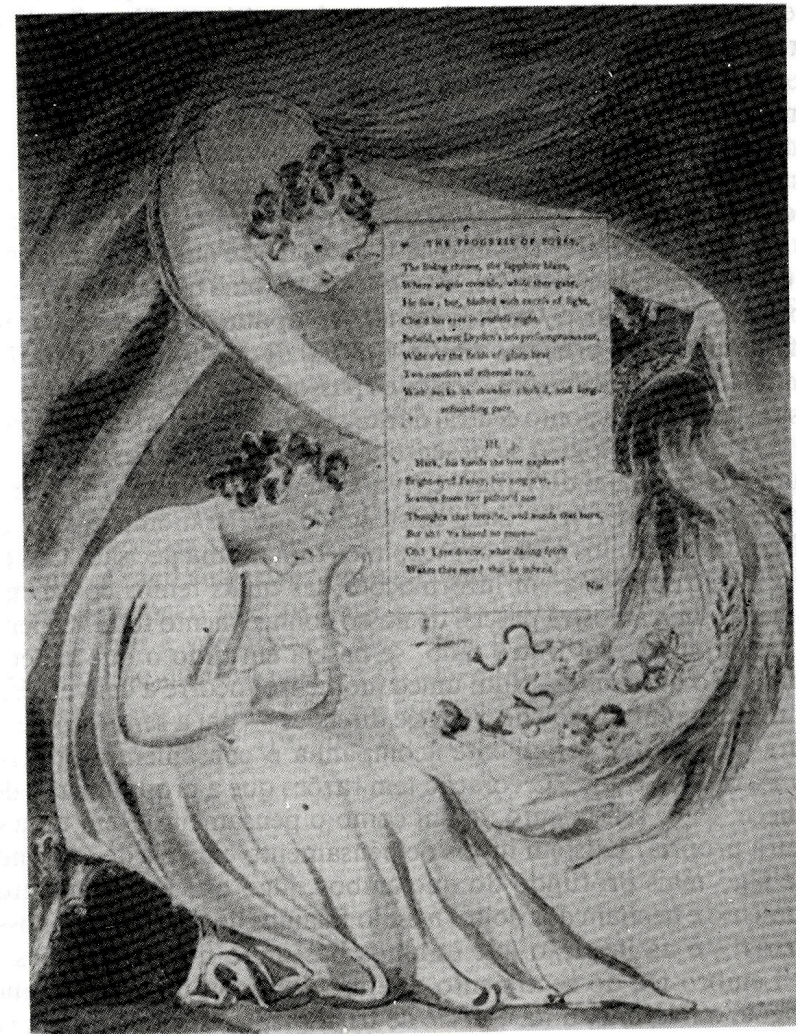 THE PROGRESS OF POESY.
The living throne, the sapphire blaze,
Where angels tremble, while they gaze,
He saw; but, blasted with excess of light,
Clos'd his eyes in endless night.
Behold, where Dryden's less presumptuous car,
Wide o'er the fields of glory bear
Two coursers of ethereal race,
With necks in thunder cloth'd, and long-
resounding pace.
III.
Hark, his hands the lyre explore!
Bright-eyed Fancy, hov'ring o'er,
Scatters from her pictur'd urn
Thoughts that breathe, and words that burn.
But ah! 'tis heard no more—
Oh! Lyre divine, what daring spirit
Wakes thee now? tho' he inherit
Nor